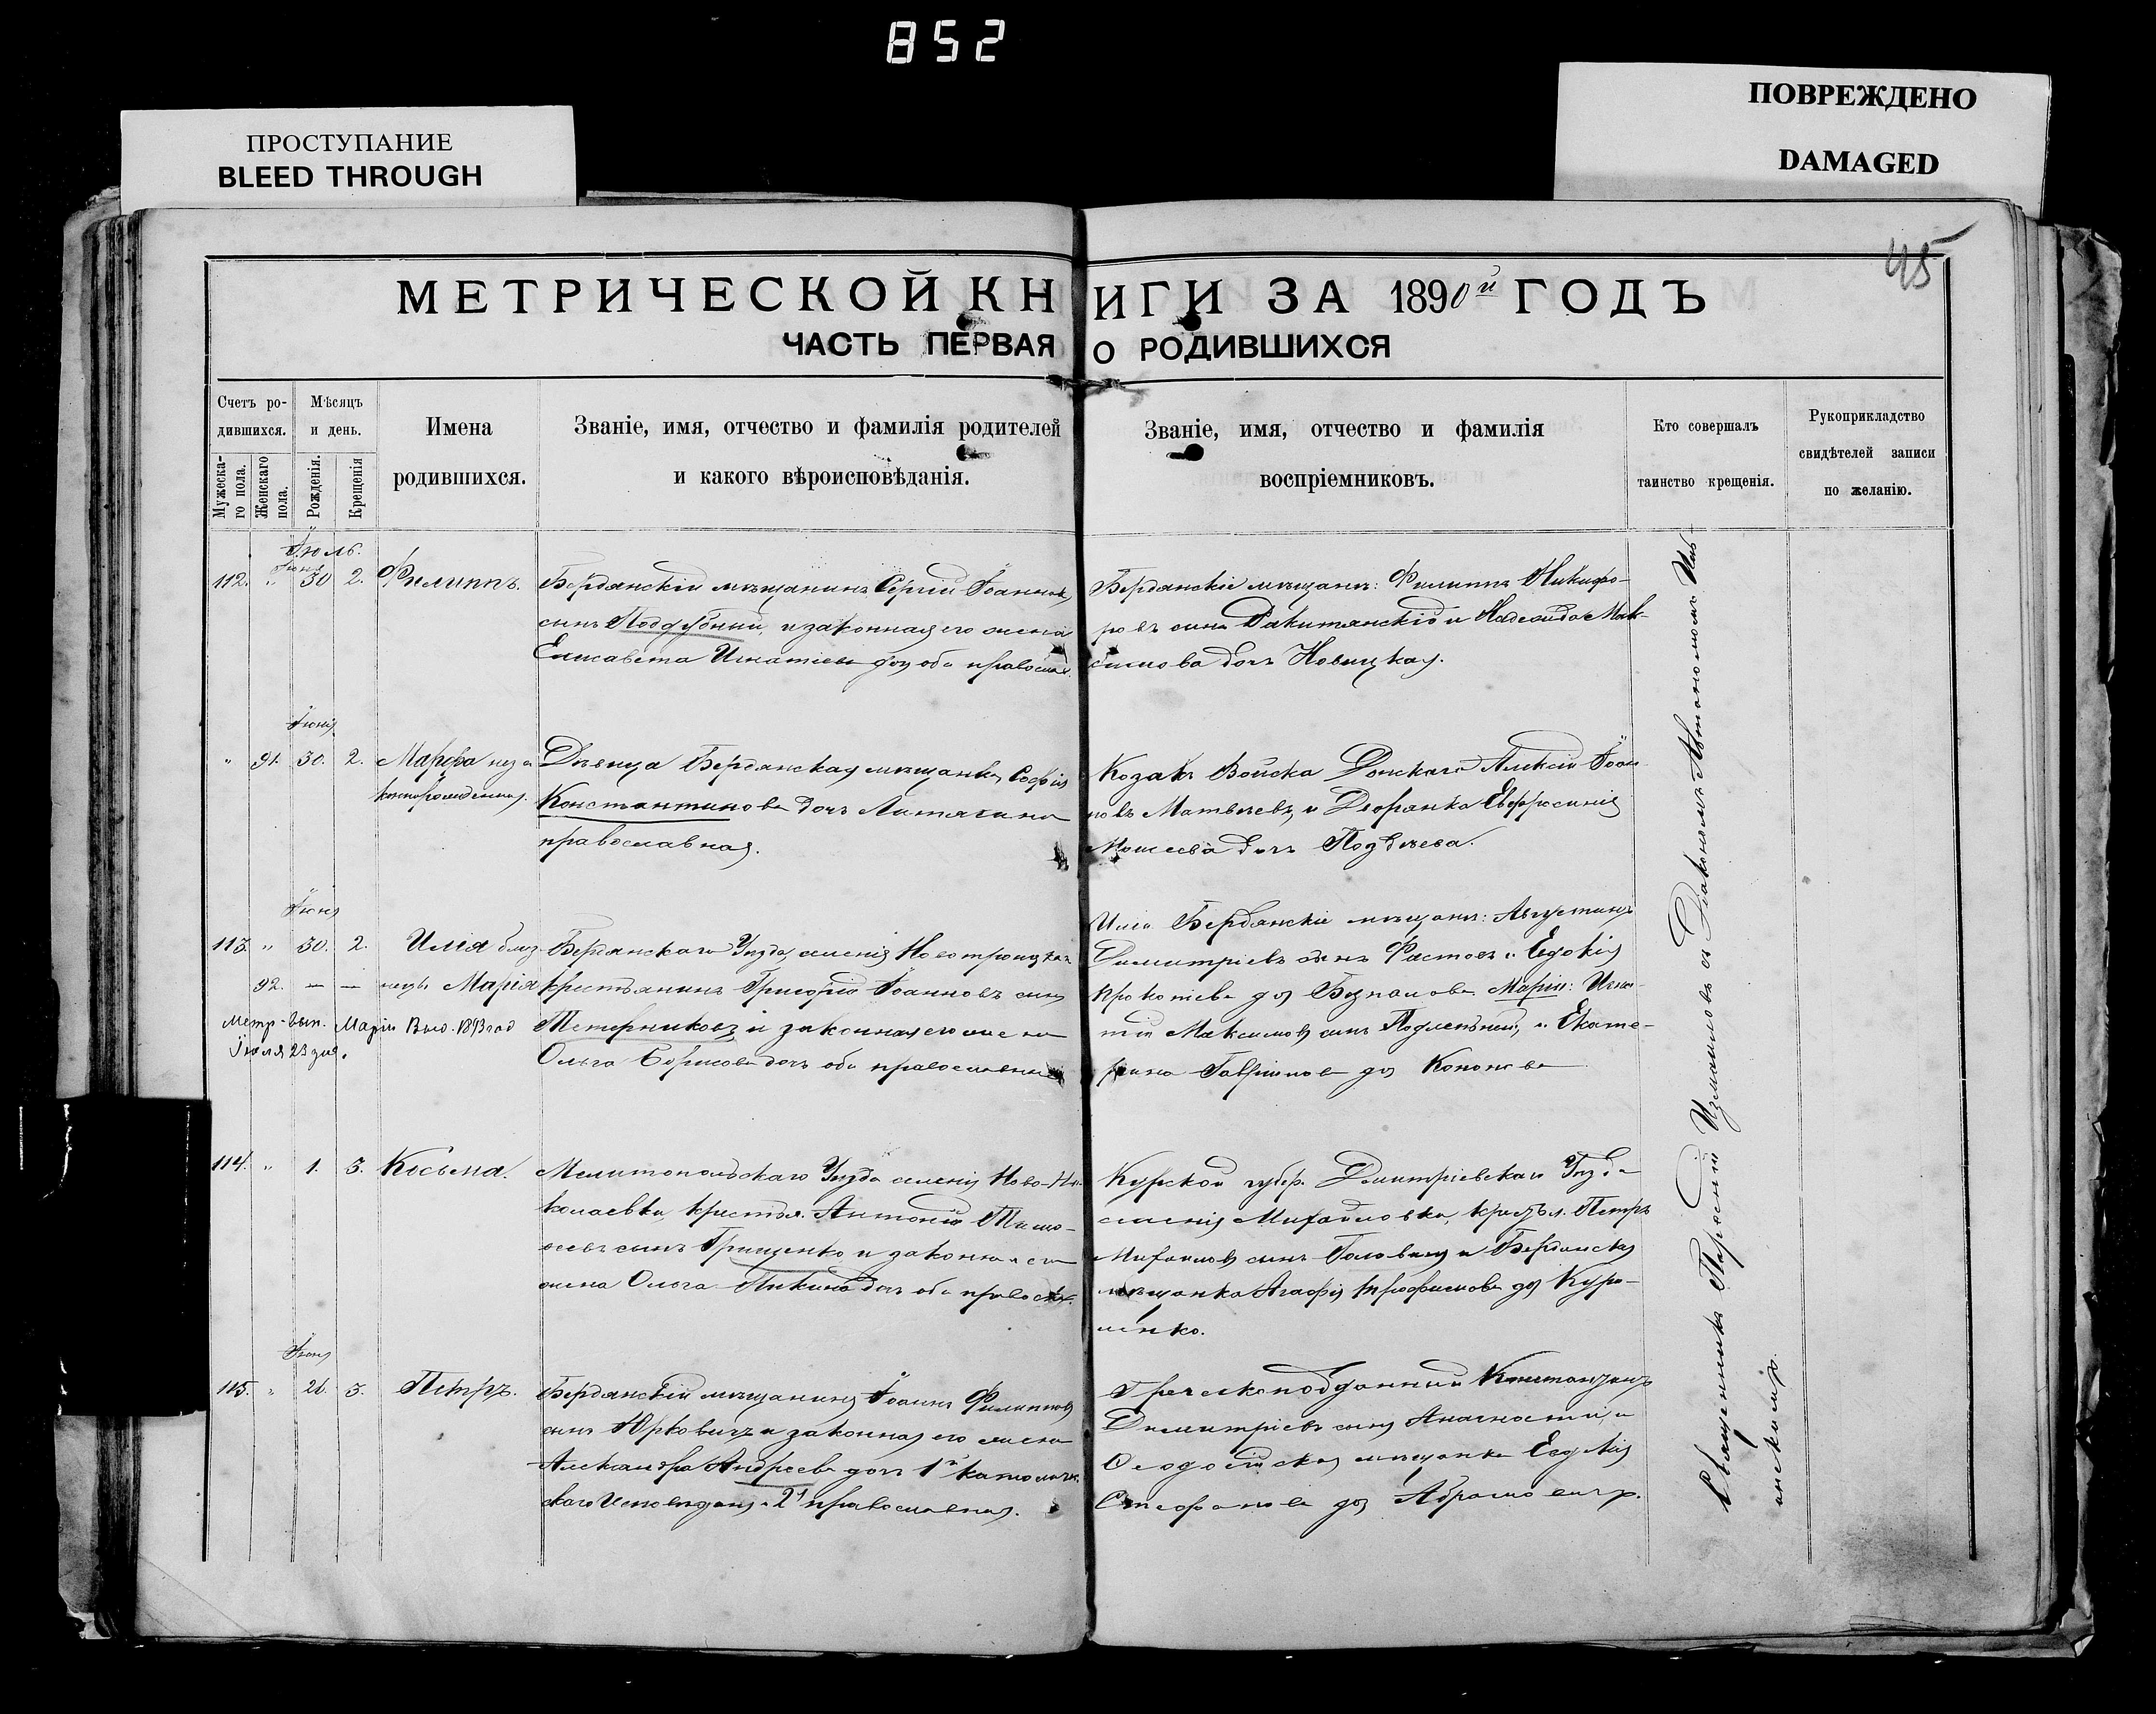 852
ПРОСТУПАНИЕ
BLEED THROUGH
ПОВРЕЖДЕНО
DAMAGED
45
МЕТРИЧЕСКОЙ КНИГИ ЗА 1890й ГОДЪ
ЧАСТЬ ПЕРВАЯ О РОДИВШИХСЯ
Счетъ ро-
дившихся.
Мужеска-
го пола.
Женскаго
пола.
Мѣсяцъ
и день.
Рожденія.
Крещенія
Имена
родившихся.
Званіе, имя, отчество и фамилія родителей
и какого вѣроисповѣданія.
Званіе, имя, отчество и фамилія
воспріемниковъ.
Кто совершалъ
таинство крещенія.
Рукоприкладство
свидѣтелей записи
по желанію.
Іюль.
Іюня
112. " 30 2. Филиппъ.
Бердянскій мѣщанинъ Сергій Іоанновъ
сынъ Поддубный, и законная его жена
Елисавета Игнатіева доч оба православ.
Бердянскіе мѣщане: Филиппъ Никифо-
ровъ сынъ Ракитянскій и Надежда Мак-
симова дочь Новицкая.
Іюня
" 91. 30. 2. Марфа неза
коннорожденная.
Дѣвица Бердянская мѣщанка Софія
Константинова дочь
православная.
Козакъ Войска Донскаго Алексій Іоан
новъ Матвѣевъ, и Дворянка Евфросинія
Моисеева дочь Поздѣева.
Іюня
113. " 30. 2. Илія близ
92. — — нецы Марія
Метр. вып. Маріи Выд. 1893 год
Іюля 23 дня.
Бердянскаго Уѣзда, селенія Новотроицкаго
крестьянинъ Григорій Іоанновъ сынъ
и законная его жена
Ольга Борисова дочь оба православные
Иліи Бердянскіе мѣщане: Августинъ
Димитріевъ сынъ и Евдокія
Прокопіева доч Марии: Игна-
тій Максимовъ сынъ и Екате-
рина Гавріилова доч Кононова
114. " 1. 3. Косьма.
Мелитопольскаго Уѣзда селенія Ново-Ни-
колаевки, крестья. Антоній Тимо-
сынъ Грищенко и законная его
жена Ольга дочь оба правосл.
Курской губер. Димитріевскаго Уѣзда
селенія Михайловка, крестьян. Петръ
Михаиловъ сынъ и Бердянская
мѣщанка Агафія Трофимова доч Кури-
ленко.
Іюня
115. " 26. 3. Петръ.
Бердянскій мѣщанинъ Іоаннъ Филипповъ
сынъ Юрковичъ и законная его жена
Александра Андреева дочь 1й католиче-
скаго Исповѣданія 2я православная.
Греческоподданный Константинъ
Димитріевъ сынъ Анагности, и
Ѳеодосійская мѣщанка Евдокія
Стефанова доч Абрамовичъ.
Священникъ Парѳеній Измаиловъ съ Діакономъ Автономомъ